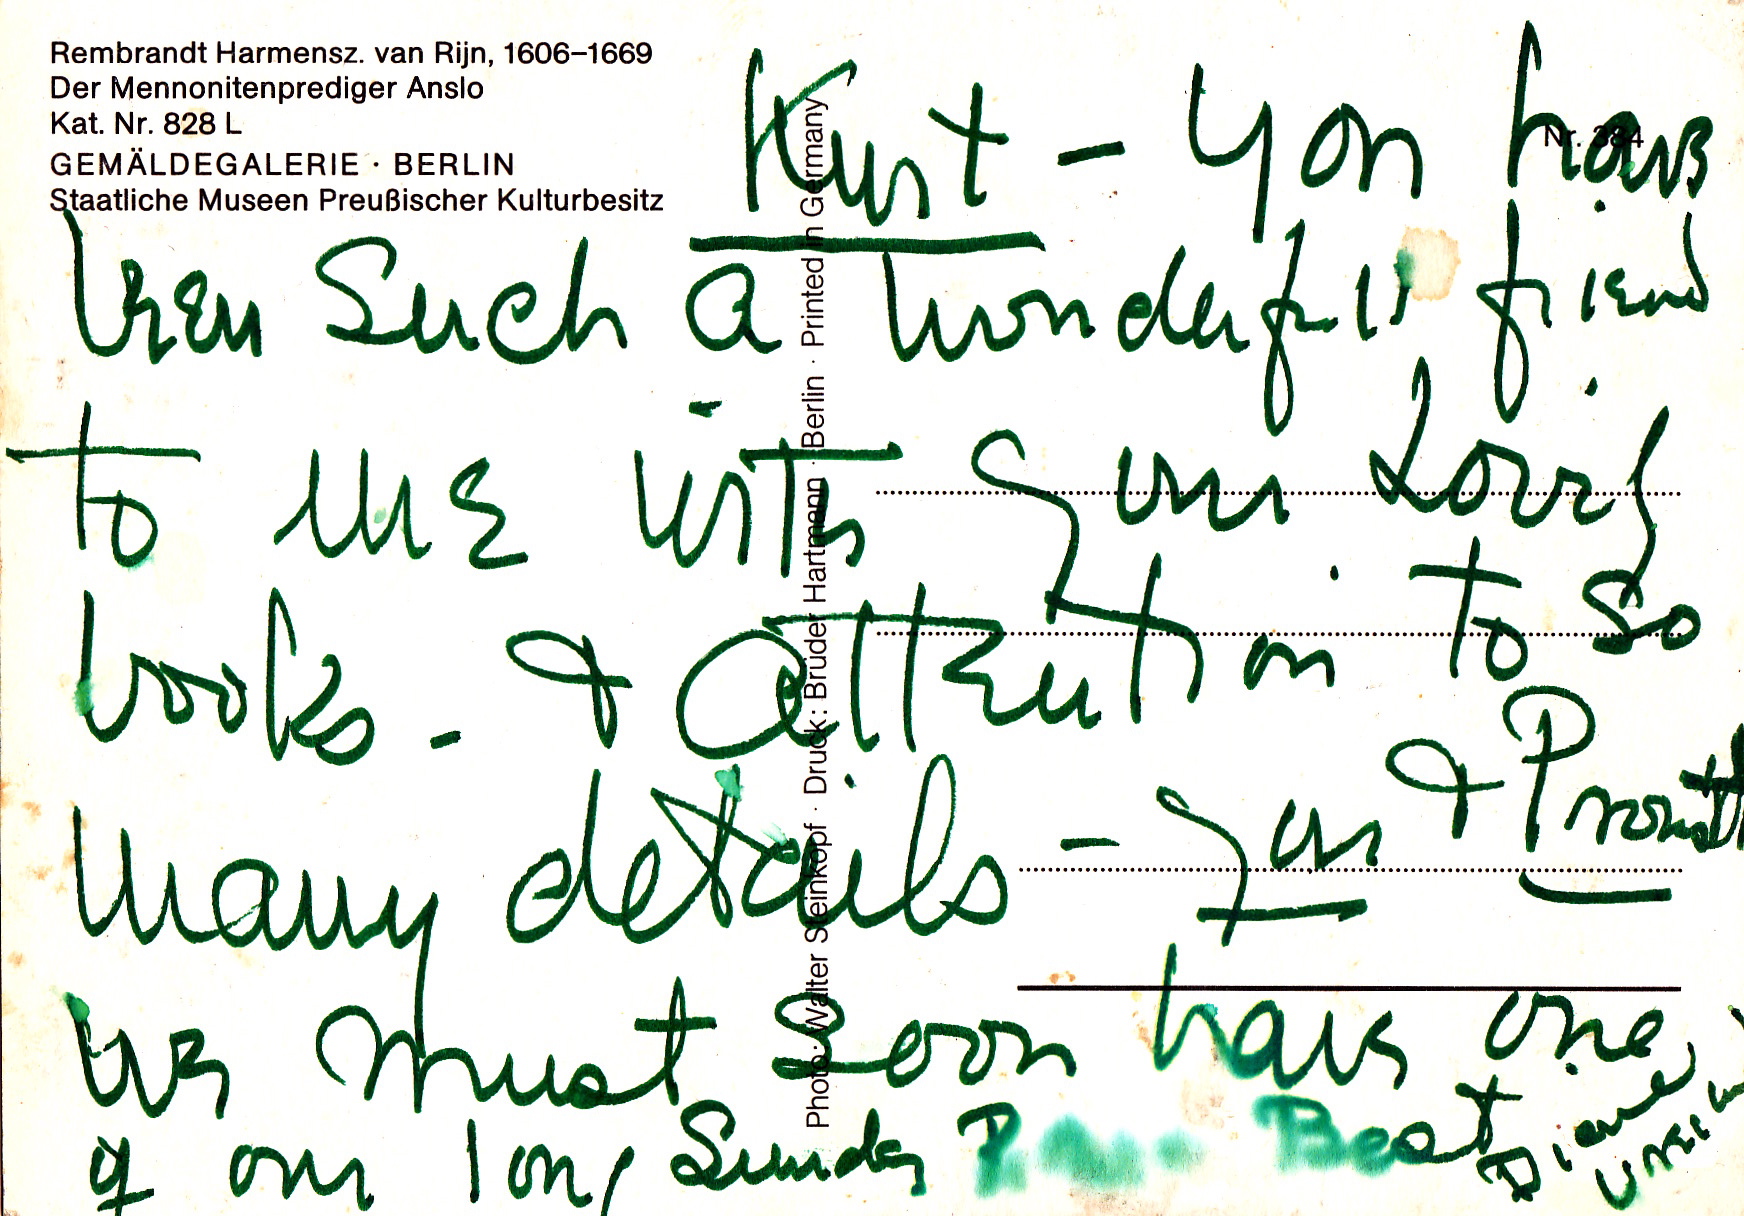 Rembrandt Harmensz. van Rijn, 1606–1669
Der Mennonitenprediger Anslo
Kat. Nr. 828 L
GEMÄLDEGALERIE · BERLIN
Staatliche Museen Preußischer Kulturbesitz
Nr. 384
Photo: Walter Steinkopf · Druck: Brüder Hartmann · Berlin · Printed in Germany
Kurt – you have
been such a wonderful friend
to me with your loving
books - & attention to so
many details – you &
we must soon have one
of our long Sunday
Best
Diane